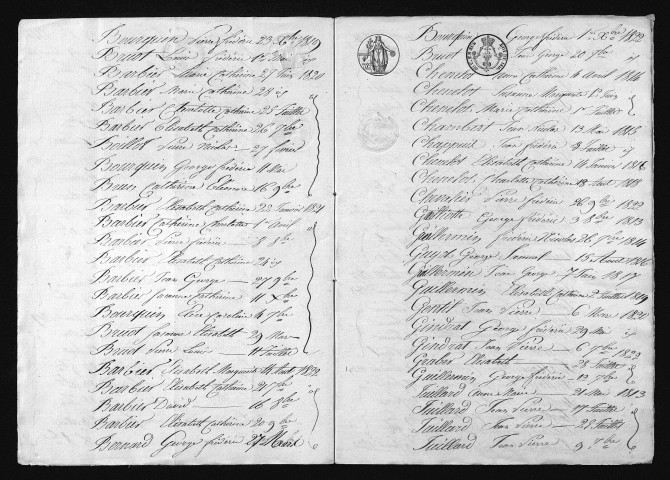 Bourquin Pierre frédéric 23 Xbre 1819
Bridet Louis frédéric 12 Mai id
Barbier Marie Catherine 27 Juin 1820
Barbier Marie Catherine 28 id
Barbier Charlotte Catherine 25 Juillet
Barbier Elisabeth Catherine 26 7bre
Boillot Pierre Nicolas 27 février
Bourquin George frédéric 11 Mai
Brun Catherine Eléonore 16 9bre
Barbier Elisabeth Catherine 23 Janvier 1821
Barbier Catherine Charlotte 1er Avril
Barbier Louis frédéric 8 8bre
Barbier Elisabeth Catherine 24 id
Barbier Jean George 27 9bre
Barbier Suzanne Catherine 11 Xbre
Bourquin Elise Caroline 4 7bre
Bridet Suzanne Elisabeth 29 Mars
Bridet Pierre Louis 11 Juillet
Barbier Elisabeth Marguerite 14 Août 1822
Barbier Elisabeth Catherine 21 7bre
Barbier David 16 8bre
Barbier Elisabeth Catherine 20 9bre
Bonnard George frédéric 27 Mars
Bourquin George frédéric 1er Xbre 1822
Bridet Jean George 20 7bre id
Chenelot Anne Catherine 4 Avril 1814
Chenelot Suzanne Marguerite 15 Juin
Chenelot Marie Catherine 1er Juillet
Chambert Jean Nicolas 13 Mai 1816
Chappuis Jean frédéric 3 Juillet id
Chenelot Elisabeth Catherine 14 Janvier 1816
Chenelot Charlotte Catherine 18 Août 1818
Chenelot Pierre frédéric 26 9bre 1822
Galliotte George frédéric 3 8bre 1813
Guillermin frédéric Nicolas 26 7bre 1814
Guyot George Samuel 15
Guillermin Jean George 7 Juin 1817
Guillermin Elisabeth Catherine 2 Juillet 1819
Gentil Jean Pierre 6 Mars 1820
Gendrat George frédéric 29 Mai id
Gendrat Jean Pierre 6 7bre 1823
Graber Elisabeth 28 Juillet
Guillermin George frédéric 12 7bre
Juillard Anne Marie 21 Mai 1813
Juillard Jean Pierre 17 Juillet
Juillard Jean Pierre 28 Juillet
Juillard Jean Pierre 9 7bre